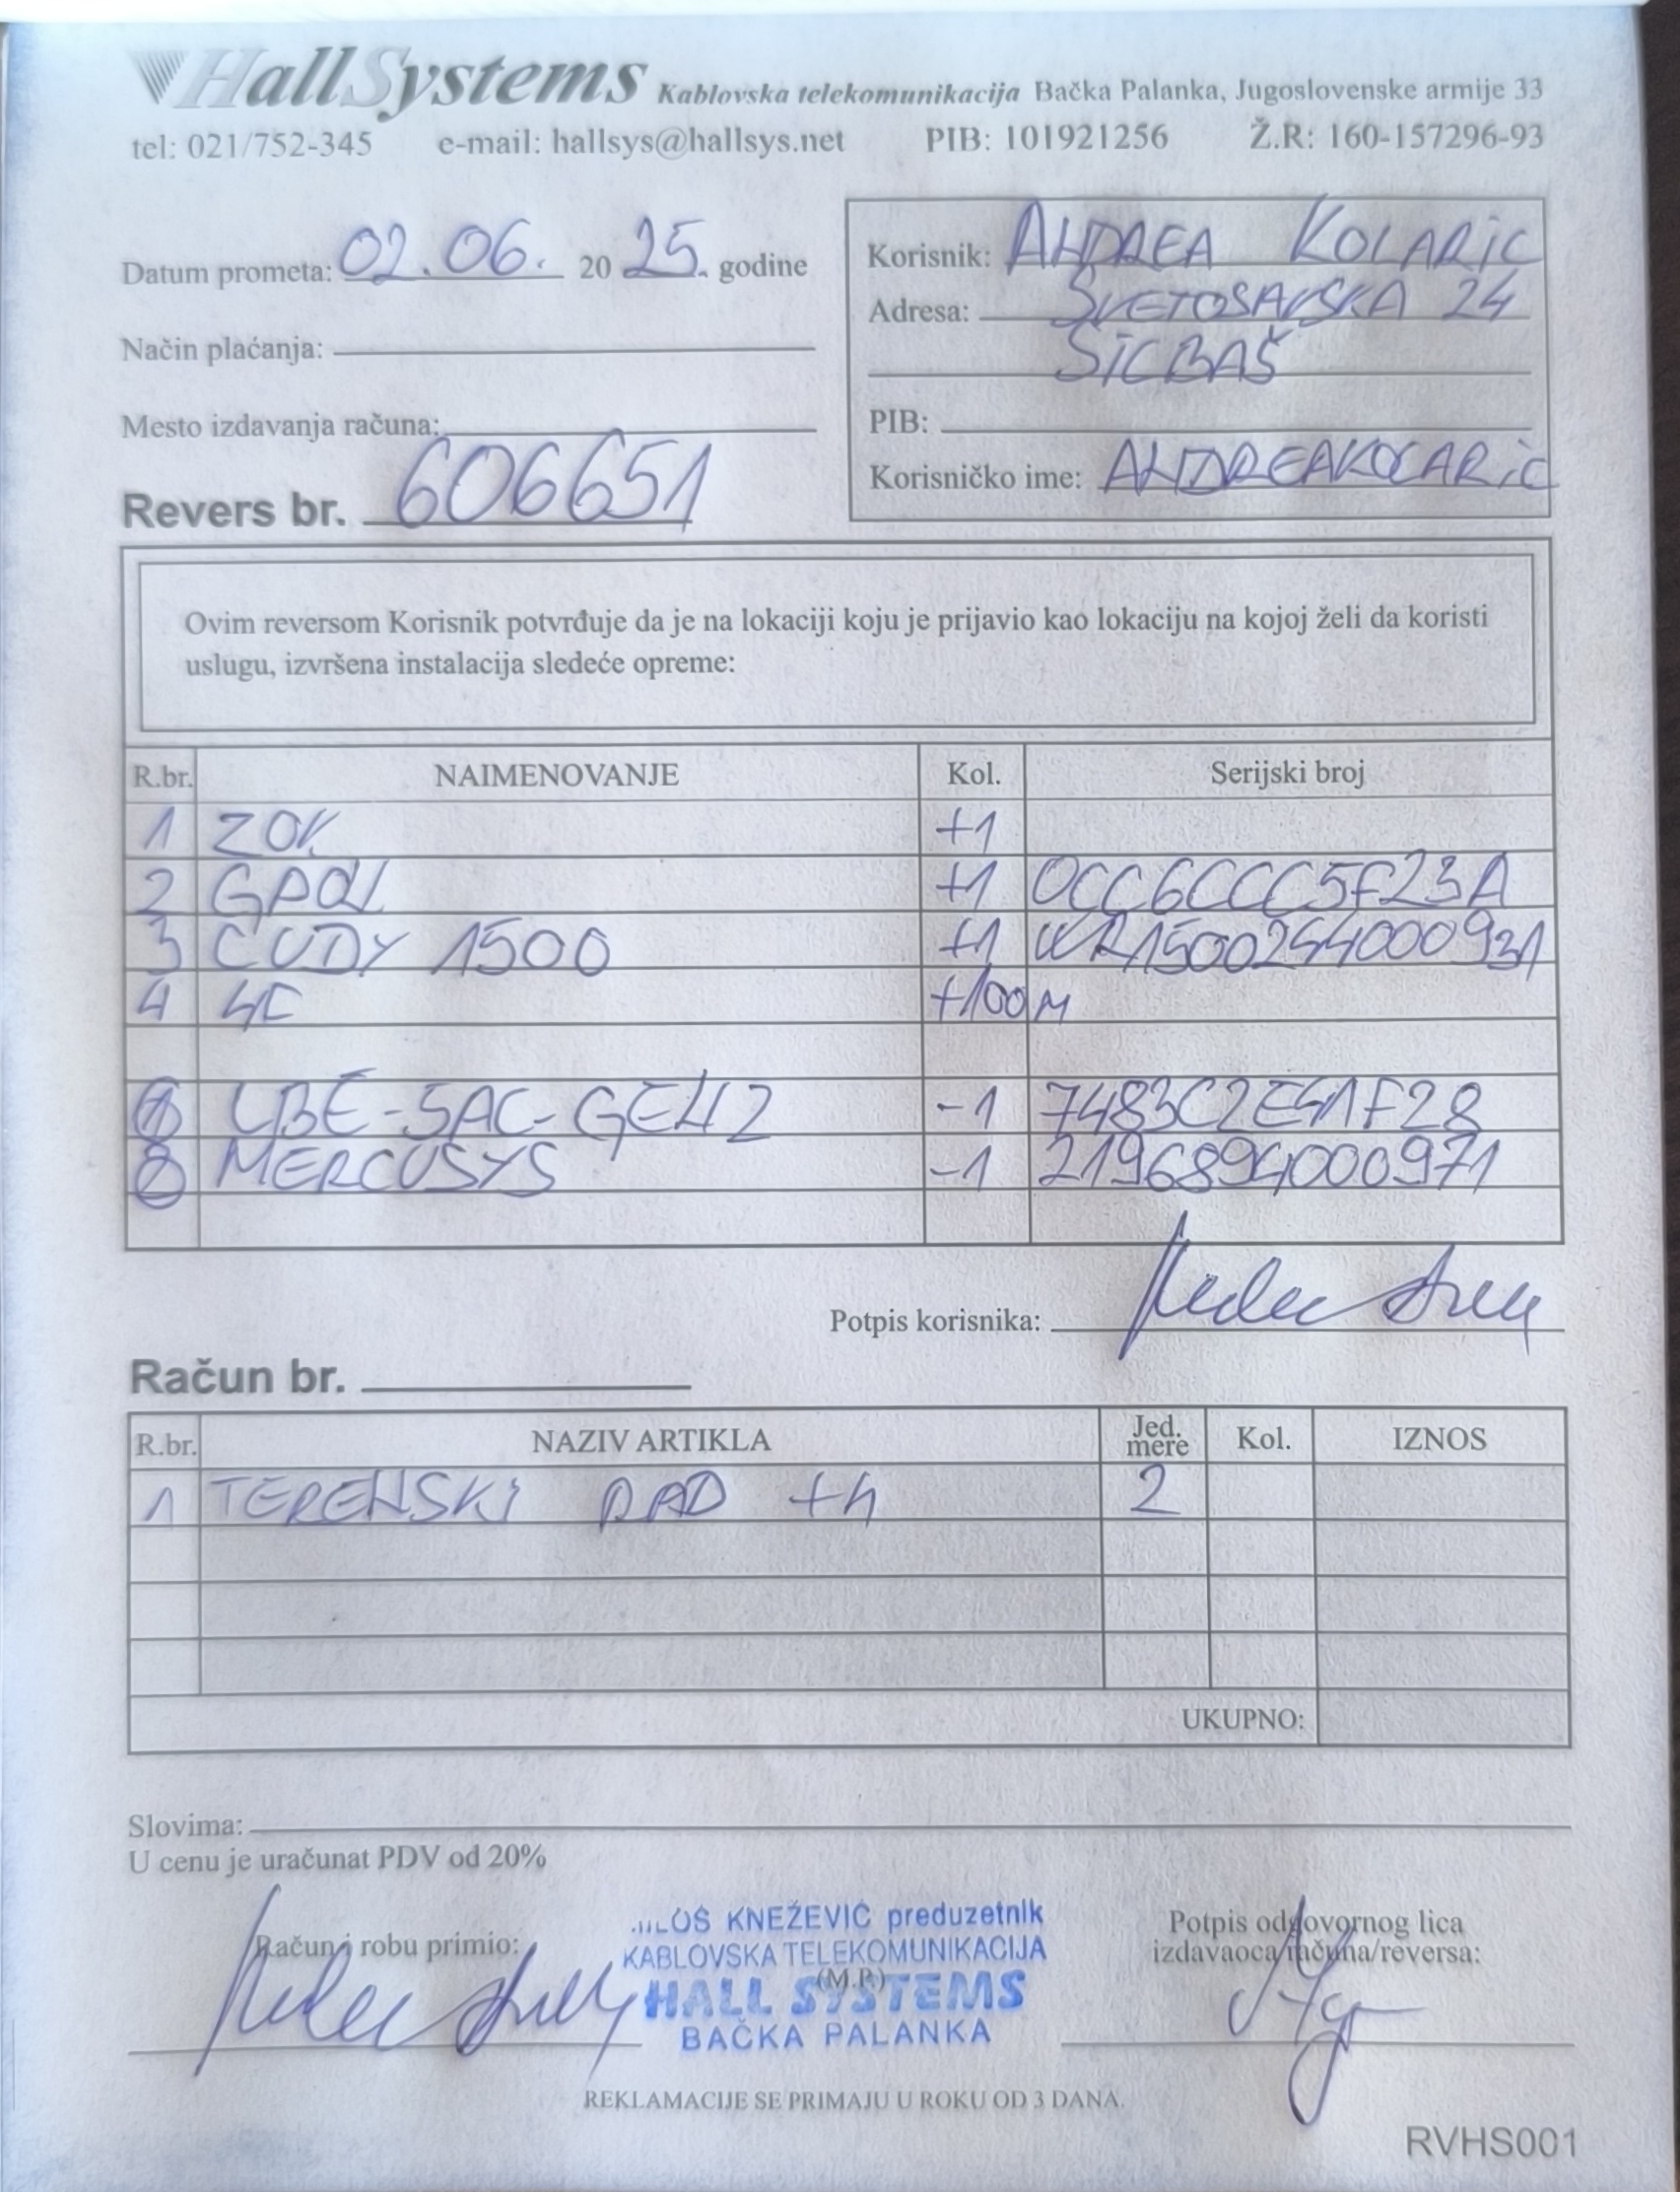 HallSystems Kablovska telekomunikacija Bačka Palanka, Jugoslovenske armije 33
tel: 021/752-345 e-mail: hallsys@hallsys.net PIB: 101921256 Ž.R: 160-157296-93
Datum prometa: 02.06. 2025. godine
Način plaćanja:
Mesto izdavanja računa:
Revers br. 606651
Korisnik: ANDREA KOLARIC
Adresa: SVETOSAVSKA 24
SICBAŠ
PIB:
Korisničko ime: ANDREAKOLARIC
Ovim reversom Korisnik potvrđuje da je na lokaciji koju je prijavio kao lokaciju na kojoj želi da koristi
uslugu, izvršena instalacija sledeće opreme:
R.br. NAIMENOVANJE Kol. Serijski broj
1 ZOK +1
2 GPON +1 0CC6CCC5F23A
3 CUDY 1500 +1 WR15002544000931
4 4C +100 M
1 LBE-5AC-GEN2 -1 7483C2E41F28
2 MERCUSYS -1 2196894000971
Potpis korisnika:
Račun br.
R.br. NAZIV ARTIKLA Jed. mere Kol. IZNOS
1 TERENSKI RAD +h 2
UKUPNO:
Slovima:
U cenu je uračunat PDV od 20%
Račun i robu primio:
KNEŽEVIĆ preduzetnik
KABLOVSKA TELEKOMUNIKACIJA
(M.P.)
HALL SYSTEMS
BAČKA PALANKA
Potpis odgovornog lica
izdavaoca računa/reversa:
REKLAMACIJE SE PRIMAJU U ROKU OD 3 DANA.
RVHS001